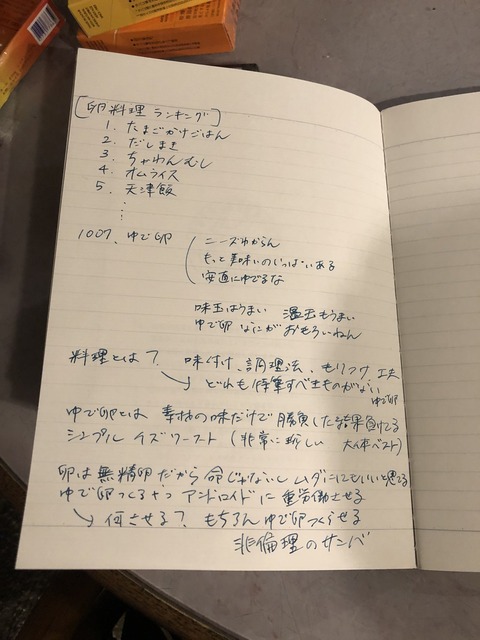 [卵料理ランキング]
1. たまごかけごはん
2. だしまき
3. ちゃわんむし
4. オムライス
5. 天津飯
⋮
1007. ゆで卵
ニーズわからん
もっと美味いのいっぱいある
安直にゆでるな
味玉はうまい 温玉もうまい
ゆで卵 なにが おもろいねん
料理とは? 味付け、調理法、もりつけ 工夫
→ どれも特筆すべきものがない
ゆで卵
ゆで卵とは 素材の味だけで勝負した結果負けてる
シンプル イズ ワースト (非常に珍しい 大体ベスト)
卵は無精卵だから命じゃないし ムダにしてもいいと思ってる
ゆで卵つくるやつ アンドロイドに重労働させる
→ 何させる? もちろん ゆで卵つくらせる
非倫理のサンバ